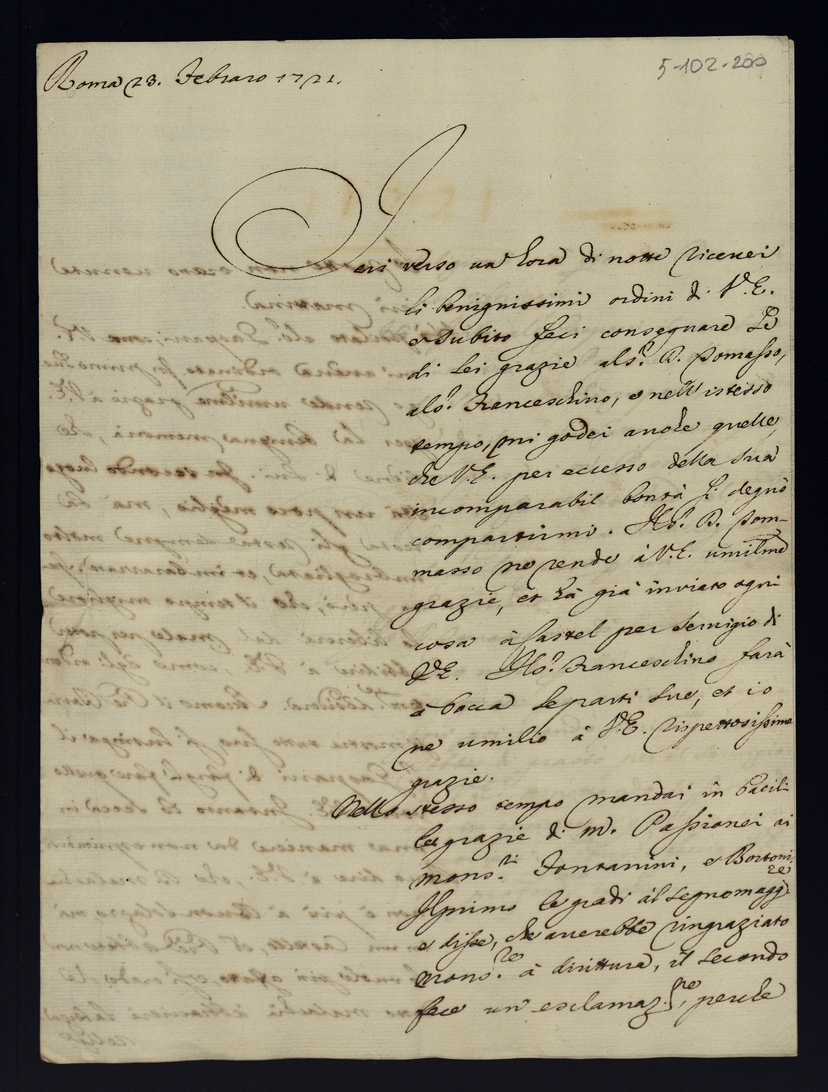 Roma 23. Febraro 1721.
5-102-200
Ieri verso un hora di notte ricevei
li benignissimi ordini di V.E.
e subito feci consegnare le
di Lei grazie al s.r D. Tomasso,
al s.r Franceschino, e nell'istesso
tempo, mi godei anche quelle,
che V.E. per eccesso della sua
incomparabil bontà si degnò
compartirmi. Il s.r D. Tom-
masso ne rende à V.E. umilme
grazie, et hà già inviato ogni
cosa à Castel per servigio di
V.E. Il s.r Franceschino farà
à bocca le parti sue, et io
ne umilio à V.E. rispettosissime
grazie.
Nello stesso tempo mandai in bacili
le grazie di m.r Passionei ai
mons.ri Fontanini, e Bortoni.
Il primo le gradì al segno magg.re
e disse, che averebbe ringraziato
mons.re à dirittura, il secondo
fece un'esclamaz.ne, perche